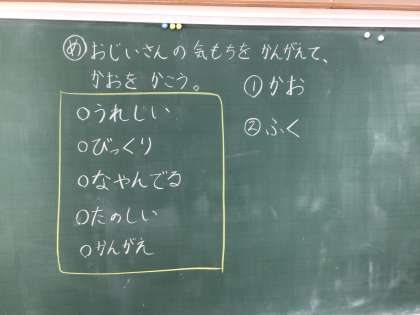 めおじいさんの気もちを かんがえて、
かおを かこう。
○うれしい
○びっくり
○なやんでる
○たのしい
○かんがえ
①かお
②ふく